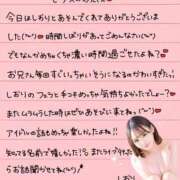 今日はしおりとあそんでくれてありがとうございま
した(♡♡) 時間しばりがあってごめんなさい(><)
でもなんかめちゃくちゃ濃い時間過ごせたよね？
お兄さん毎回すごいっちゃいそうになるのかわいすぎたっ
しおりのフェラと手コキめっちゃ気持ちよかったでしょー？
またムラムラした時はぜひあそびに来てね(♡♡)
アイドルの話もめっちゃ楽しかったよ！！
知ってる名前で嬉しかった またライブ行った
らお話聞かせてね(♡♡)
しおり